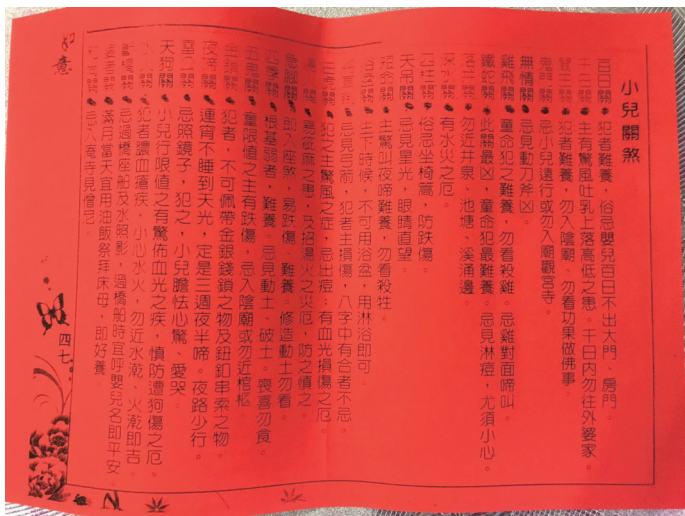 小兒關煞
百日關 犯者難養，俗忌嬰兒百日不出大門、房門。
千日關 主有驚風吐乳上落高低之患。千日內勿往外婆家。
犯者難養，勿入陰廟、勿看功果做佛事。
鬼門關 忌小兒遠行或勿入廟觀宮寺。
無情關 忌見動刀斧凶。
雞飛關 童命犯之難養，勿看殺雞。忌雞對面啼叫。
鐵蛇關 此關最凶，童命犯最難養。忌見淋痘，尤須小心。
落井關 勿近井泉、池塘、溪涌邊。
深水關 有水火之厄。
俗忌坐椅蒿，防跌傷。
天吊關 忌見星光，眼睛直望。
短命關 主驚叫夜啼難養，勿看殺牲。
生下時候，不可用浴盆，用淋浴即可。
忌見弓箭，犯者主損傷，八字中有合者不忌。
犯之主驚風之症，忌出痘；有血光損傷之厄。
及招湯火之災厄，防之慎之。
急腳關 即入座煞，易跌傷，難養。修造動土勿看。
根基弱者，難養。忌見動土、破土。喪喜勿食。
童限值之主有跌傷，忌入陰廟或勿近棺柩。
犯者，不可佩帶金銀錢鎖之物及鈕釦串索之物。
夜啼關 連宵不睡到天光，定是三週夜半啼。夜路少行。
忌照鏡子，犯之，小兒膽怯心驚、愛哭。
天狗關 小兒行限值之有驚佈血光之疾，慎防遭狗傷之厄。
犯者膿血瘡疾，小心水火，勿近水潮、火潮即吉。
忌過橋座船及水照影，過橋船時宜呼嬰兒名即平安。
滿月當天宜用油飯祭拜床母，即好養。
忌入庵寺見僧尼。
如意
四七